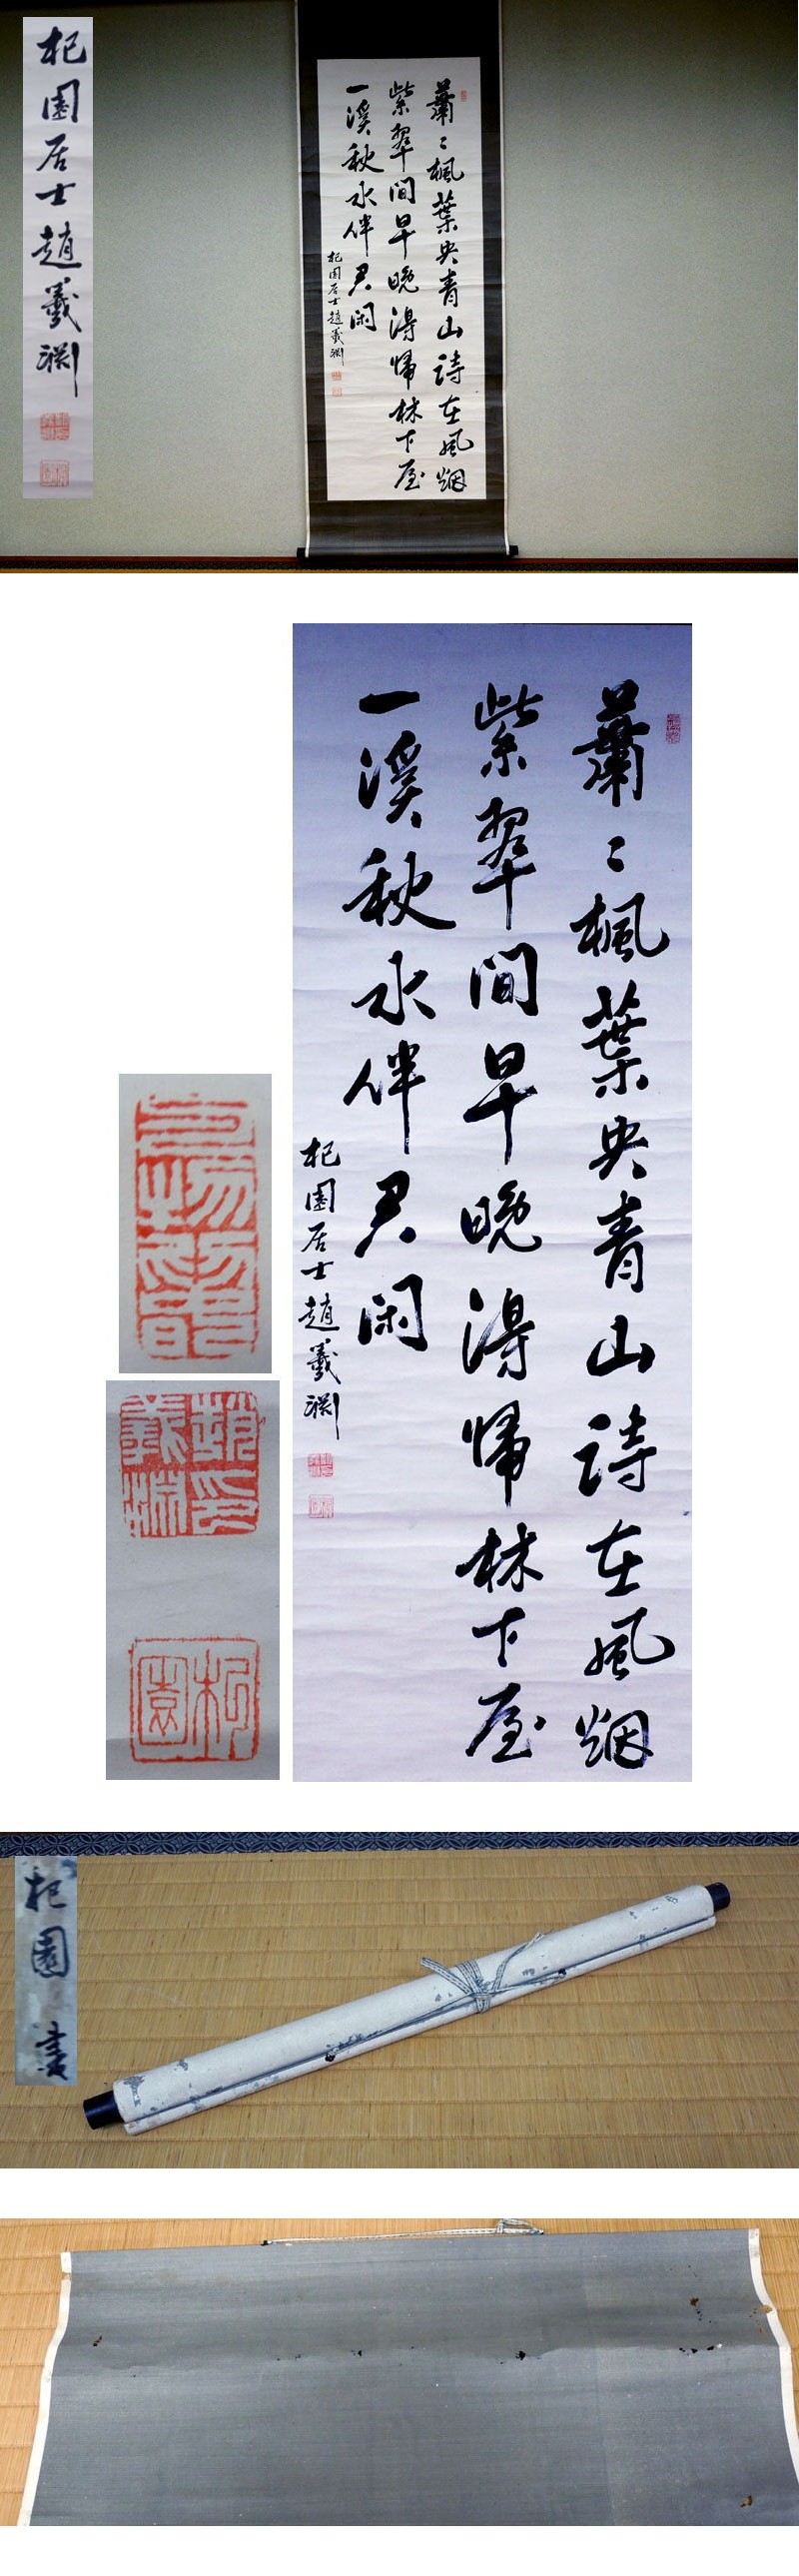 杞園居士趙羲淵
蕭〻楓葉夾青山詩在風烟
紫翠間早晚得帰林下屋
一溪秋水伴君閑
杞園居士趙羲淵
蕭〻楓葉夾青山詩在風烟
紫翠間早晚得帰林下屋
一溪秋水伴君閑
杞園居士趙羲淵
趙印
羲淵
杞園
杞園 書